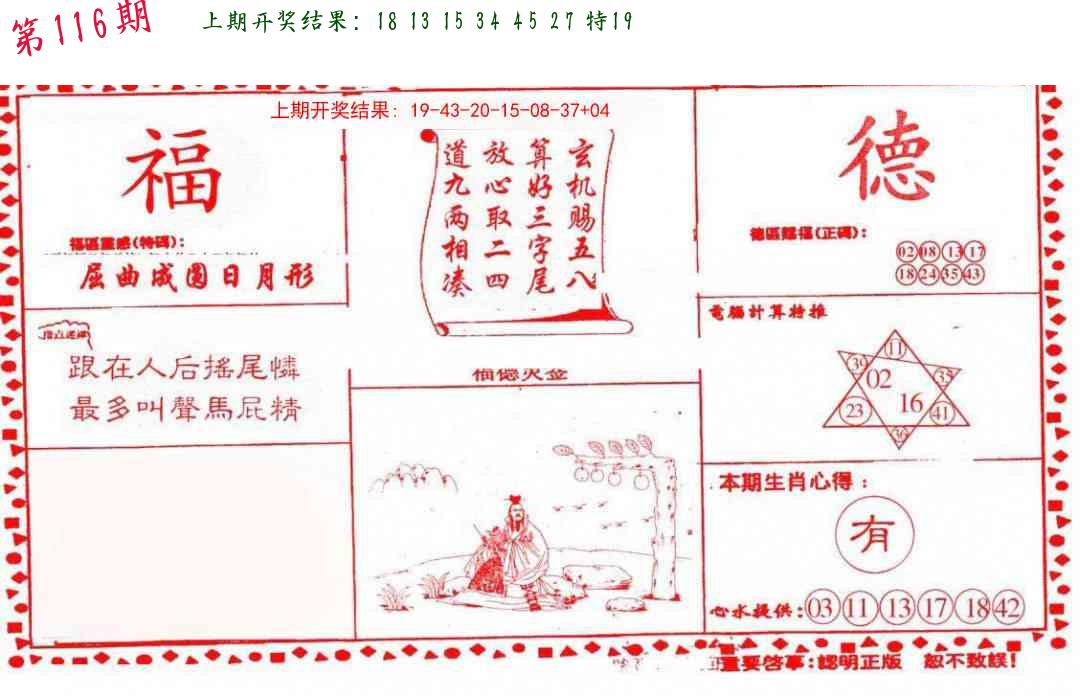 第116期
上期开奖结果：18 13 15 34 45 27 特19
上期开奖结果：19-43-20-15-08-37+04
福
福區靈感(特碼)：
屈曲成圆日月形
玄机赐五八
算好三字尾
放心取二四
道九两相凑
德
德區賜福(正碼)：
02 08 13 17
18 24 35 43
跟在人后摇尾憐
最多叫聲馬屁精
福德灵签
電腦計算特推
11
39 02 35
23 16 41
36
本期生肖心得：
有
心水提供：03 11 13 17 18 42
重要啓事：認明正版 恕不致誤！